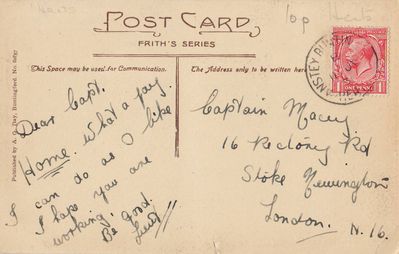 Herts
10p Herts
POST CARD
FRITH'S SERIES
This Space may be used for Communication.
The Address only to be written here
Dear Capt.
Home. What a joy.
I can do as I like
I hope you are
working. Be good.
Captain Macey
16 Rectory Rd
Stoke Newington
London. N.16.
ONE PENNY